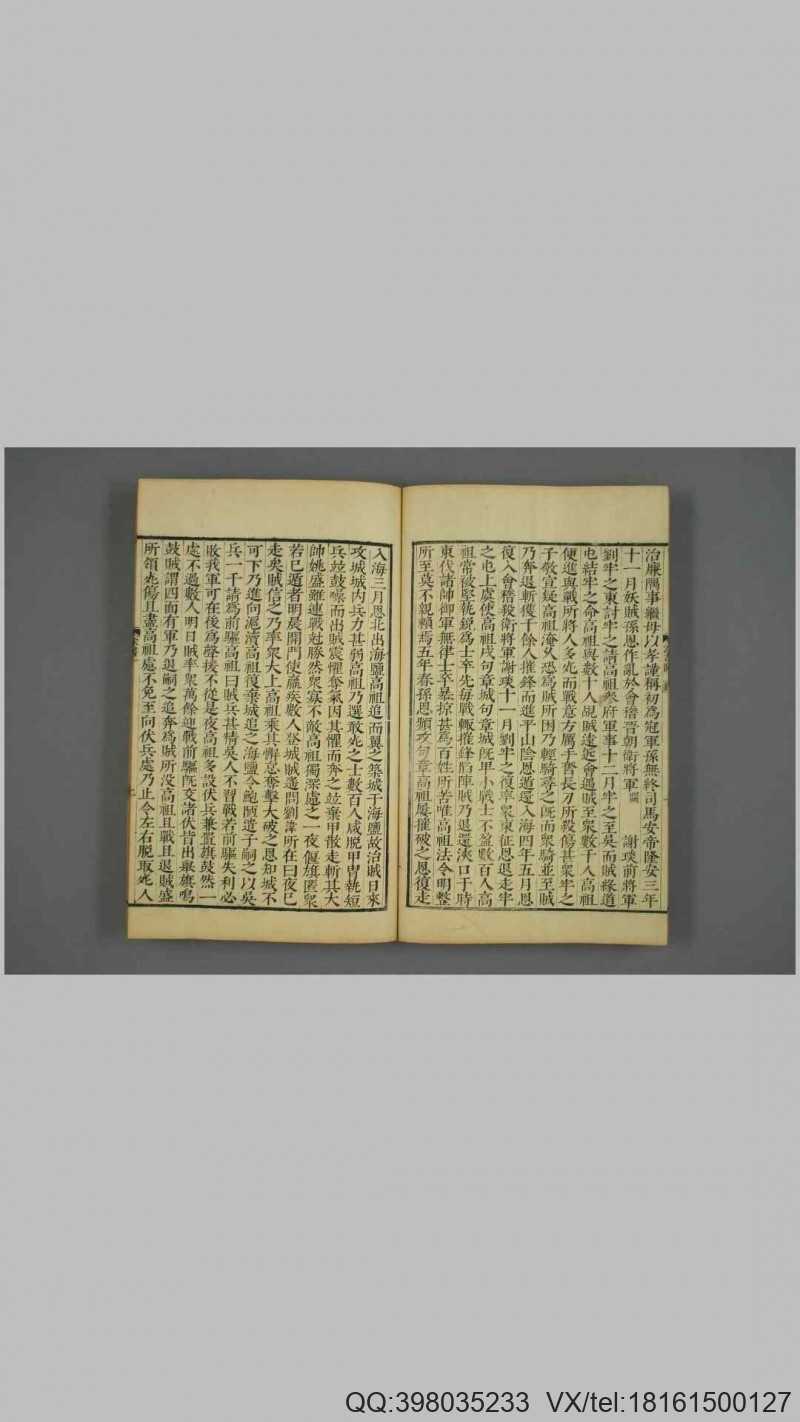 治廉隅事繼母以孝謹稱初爲冠軍孫無終司馬安帝隆安三年
十一月妖賊孫恩作亂於會稽晉朝衛將軍 謝琰前將軍
劉牢之東討牢之請高祖參府軍事十二月牢之至吳而賊緣道
屯結牢之命高祖與數十人覘賊遠近會遇賊至衆數千人高祖
便進與戰所將人多死而戰意方厲手奮長刀所殺傷甚衆牢之
子敬宣疑高祖淹久恐爲賊所困乃輕騎尋之既而衆騎並至賊
乃奔退斬獲千餘人推鋒而進平山陰恩遁還入海四年五月恩
復入會稽殺衛將軍謝琰十一月劉牢之復率衆東征恩退走牢
之屯上虞使高祖戍句章城句章城既卑小戰士不盈數百人高
祖常被堅執銳爲士卒先每戰輒摧鋒陷陣賊乃退還浹口于時
東伐諸帥御軍無律士卒暴掠甚爲百姓所苦唯高祖法令明整
所至莫不親賴焉五年春孫恩頻攻句章高祖屢摧破之恩復走
入海三月恩北出海鹽高祖追而翼之築城于海鹽故治賊日來
攻城城内兵力甚弱高祖乃選敢死之士數百人咸脱甲冑執短
兵竝鼓噪而出賊震懼奪氣因其懼而奔之竝棄甲散走斬其大
帥姚盛雖連戰尅勝然衆寡不敵高祖獨深慮之一夜偃旗匿衆
若已遁者明晨開門使羸疾數人登城賊遥問劉諱所在曰夜已
走矣賊信之乃率衆大上高祖乘其懈怠奮擊大破之恩知城不
可下乃進向滬瀆高祖復棄城追之海鹽令鮑陋遣子嗣之以吳
兵一千請爲前驅高祖曰賊兵甚精吳人不習戰若前驅失利必
敗我軍可在後爲聲援不從是夜高祖多設伏兵兼置旗鼓然一
處不過數人明日賊率衆萬餘迎戰前驅既交諸伏皆出舉旗鳴
鼓賊謂四面有軍乃退嗣之追奔爲賊所没高祖且戰且退賊盛
所領死傷且盡高祖慮不免至向伏兵處乃止令左右脱取死人
QQ:398035233 VX/tel:18161500127